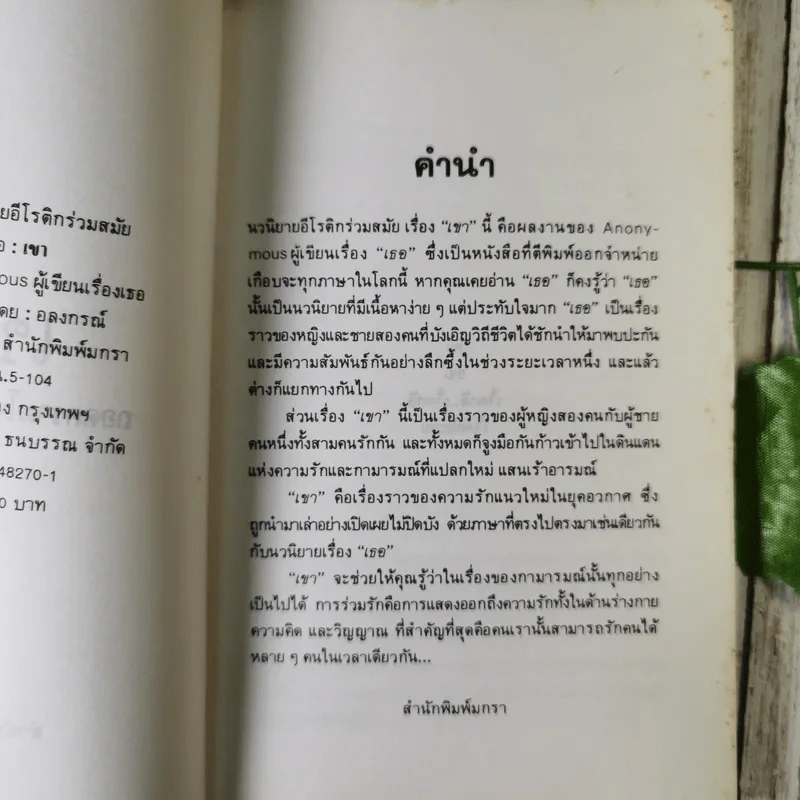 ยอีโรติกร่วมสมัย
: เขา
ous ผู้เขียนเรื่องเธอ
ดย : อลงกรณ์
สำนักพิมพ์มกรา
น.5-104
ง กรุงเทพฯ
ธนบรรณ จำกัด
48270-1
0 บาท
คำนำ
นวนิยายอีโรติกร่วมสมัย เรื่อง “เขา” นี้ คือผลงานของ Anony-
mous ผู้เขียนเรื่อง “เธอ” ซึ่งเป็นหนังสือที่ตีพิมพ์ออกจำหน่าย
เกือบจะทุกภาษาในโลกนี้ หากคุณเคยอ่าน “เธอ” ก็คงรู้ว่า “เธอ”
นั้นเป็นนวนิยายที่มีเนื้อหาง่าย ๆ แต่ประทับใจมาก “เธอ” เป็นเรื่อง
ราวของหญิงและชายสองคนที่บังเอิญวิถีชีวิตได้ชักนำให้มาพบปะกัน
และมีความสัมพันธ์กันอย่างลึกซึ้งในช่วงระยะเวลาหนึ่ง และแล้ว
ต่างก็แยกทางกันไป
ส่วนเรื่อง “เขา” นี้เป็นเรื่องราวของผู้หญิงสองคนกับผู้ชาย
คนหนึ่งทั้งสามคนรักกัน และทั้งหมดก็จูงมือกันก้าวเข้าไปในดินแดน
แห่งความรักและกามารมณ์ที่แปลกใหม่ แสนเร้าอารมณ์
“เขา” คือเรื่องราวของความรักแนวใหม่ในยุคอวกาศ ซึ่ง
ถูกนำมาเล่าอย่างเปิดเผยไม่ปิดบัง ด้วยภาษาที่ตรงไปตรงมาเช่นเดียวกัน
กับนวนิยายเรื่อง “เธอ”
“เขา” จะช่วยให้คุณรู้ว่าในเรื่องของกามารมณ์นั้นทุกอย่าง
เป็นไปได้ การร่วมรักคือการแสดงออกถึงความรักทั้งในด้านร่างกาย
ความคิด และวิญญาณ ที่สำคัญที่สุดคือคนเรานั้นสามารถรักคนได้
หลาย ๆ คนในเวลาเดียวกัน...
สำนักพิมพ์มกรา